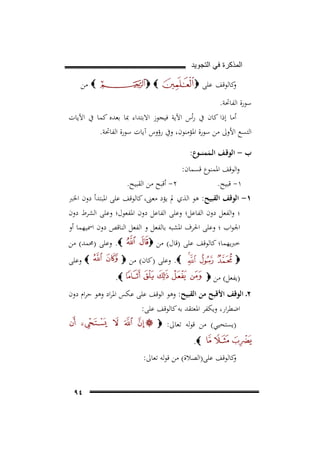 المذكرة في التجويد
وكالوقف على ﴿ ٱلْعَٰلَمِينَ ﴾ ﴿ ٱلرَّحِيمِ ﴾ من
سورة الفاتحة.
أما إذا كان في رأس الآية فيجوز الابتداء بما بعده كما في الآيات
التسع الأولى من سورة المؤمنون، وفي رؤوس آيات سورة الفاتحة.
ب – الوقف الممنـوع:
والوقف الممنوع قسمان:
١- قبيح. ٢- أقبح من القبيح.
١- الوقف القبيح: هو الذي لم يؤد معنى، كالوقف على المبتدأ دون الخبر
؛ والفعل دون الفاعل؛ وعلى الفاعل دون المفعول؛ وعلى الشرط دون
الجواب ؛ وعلى الحرف المشبه بالفعل و الفعل الناقص دون اسميهما أو
خبريهما؛ كالوقف على (قال) من ﴿ قَالَ ٱللَّهُ ﴾. وعلى (محمد) من
﴿ مُّحَمَّدٌ رَّسُولُ ٱللَّهِ ﴾. وعلى (كان) من ﴿ وَكَانَ ٱللَّهُ ﴾ وعلى
(يفعل) من ﴿ وَمَن يَفْعَلْ ذَٰلِكَ يَلْقَ أَثَامًا ﴾.
٢. الوقف الأقبـح من القبيح: وهو الوقف على عكس المراد وهو حرام دون
اضطرار، ويكفر المعتقد به كالوقف على:
(يستحيي) من قوله تعالى: ﴿ ۞ إِنَّ ٱللَّهَ لَا يَسْتَحْىِۦٓ أَن
يَضْرِبَ مَثَلًا مَّا ﴾.
وكالوقف على(الصلاة) من قوله تعالى:
٩٤